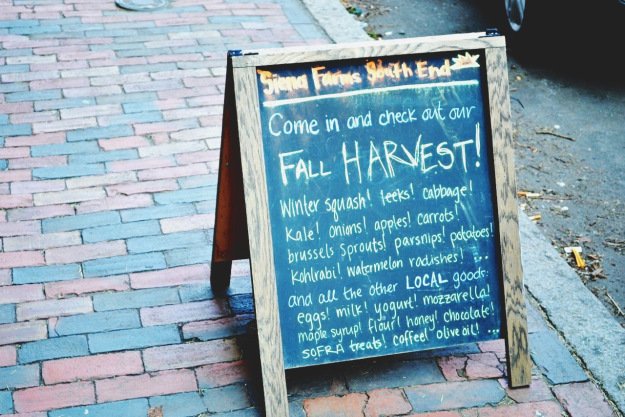 Siena Farms South End
Come in and check out our
FALL HARVEST!
Winter squash! leeks! cabbage!
Kale! onions! apples! carrots!
brussels sprouts! parsnips! potatoes!
Kohlrabi! watermelon radishes! ...
and all the other LOCAL goods:
eggs! milk! yogurt! mozzarella!
maple syrup! flour! honey! chocolate!
SOFRA treats! coffee! olive oil! ...